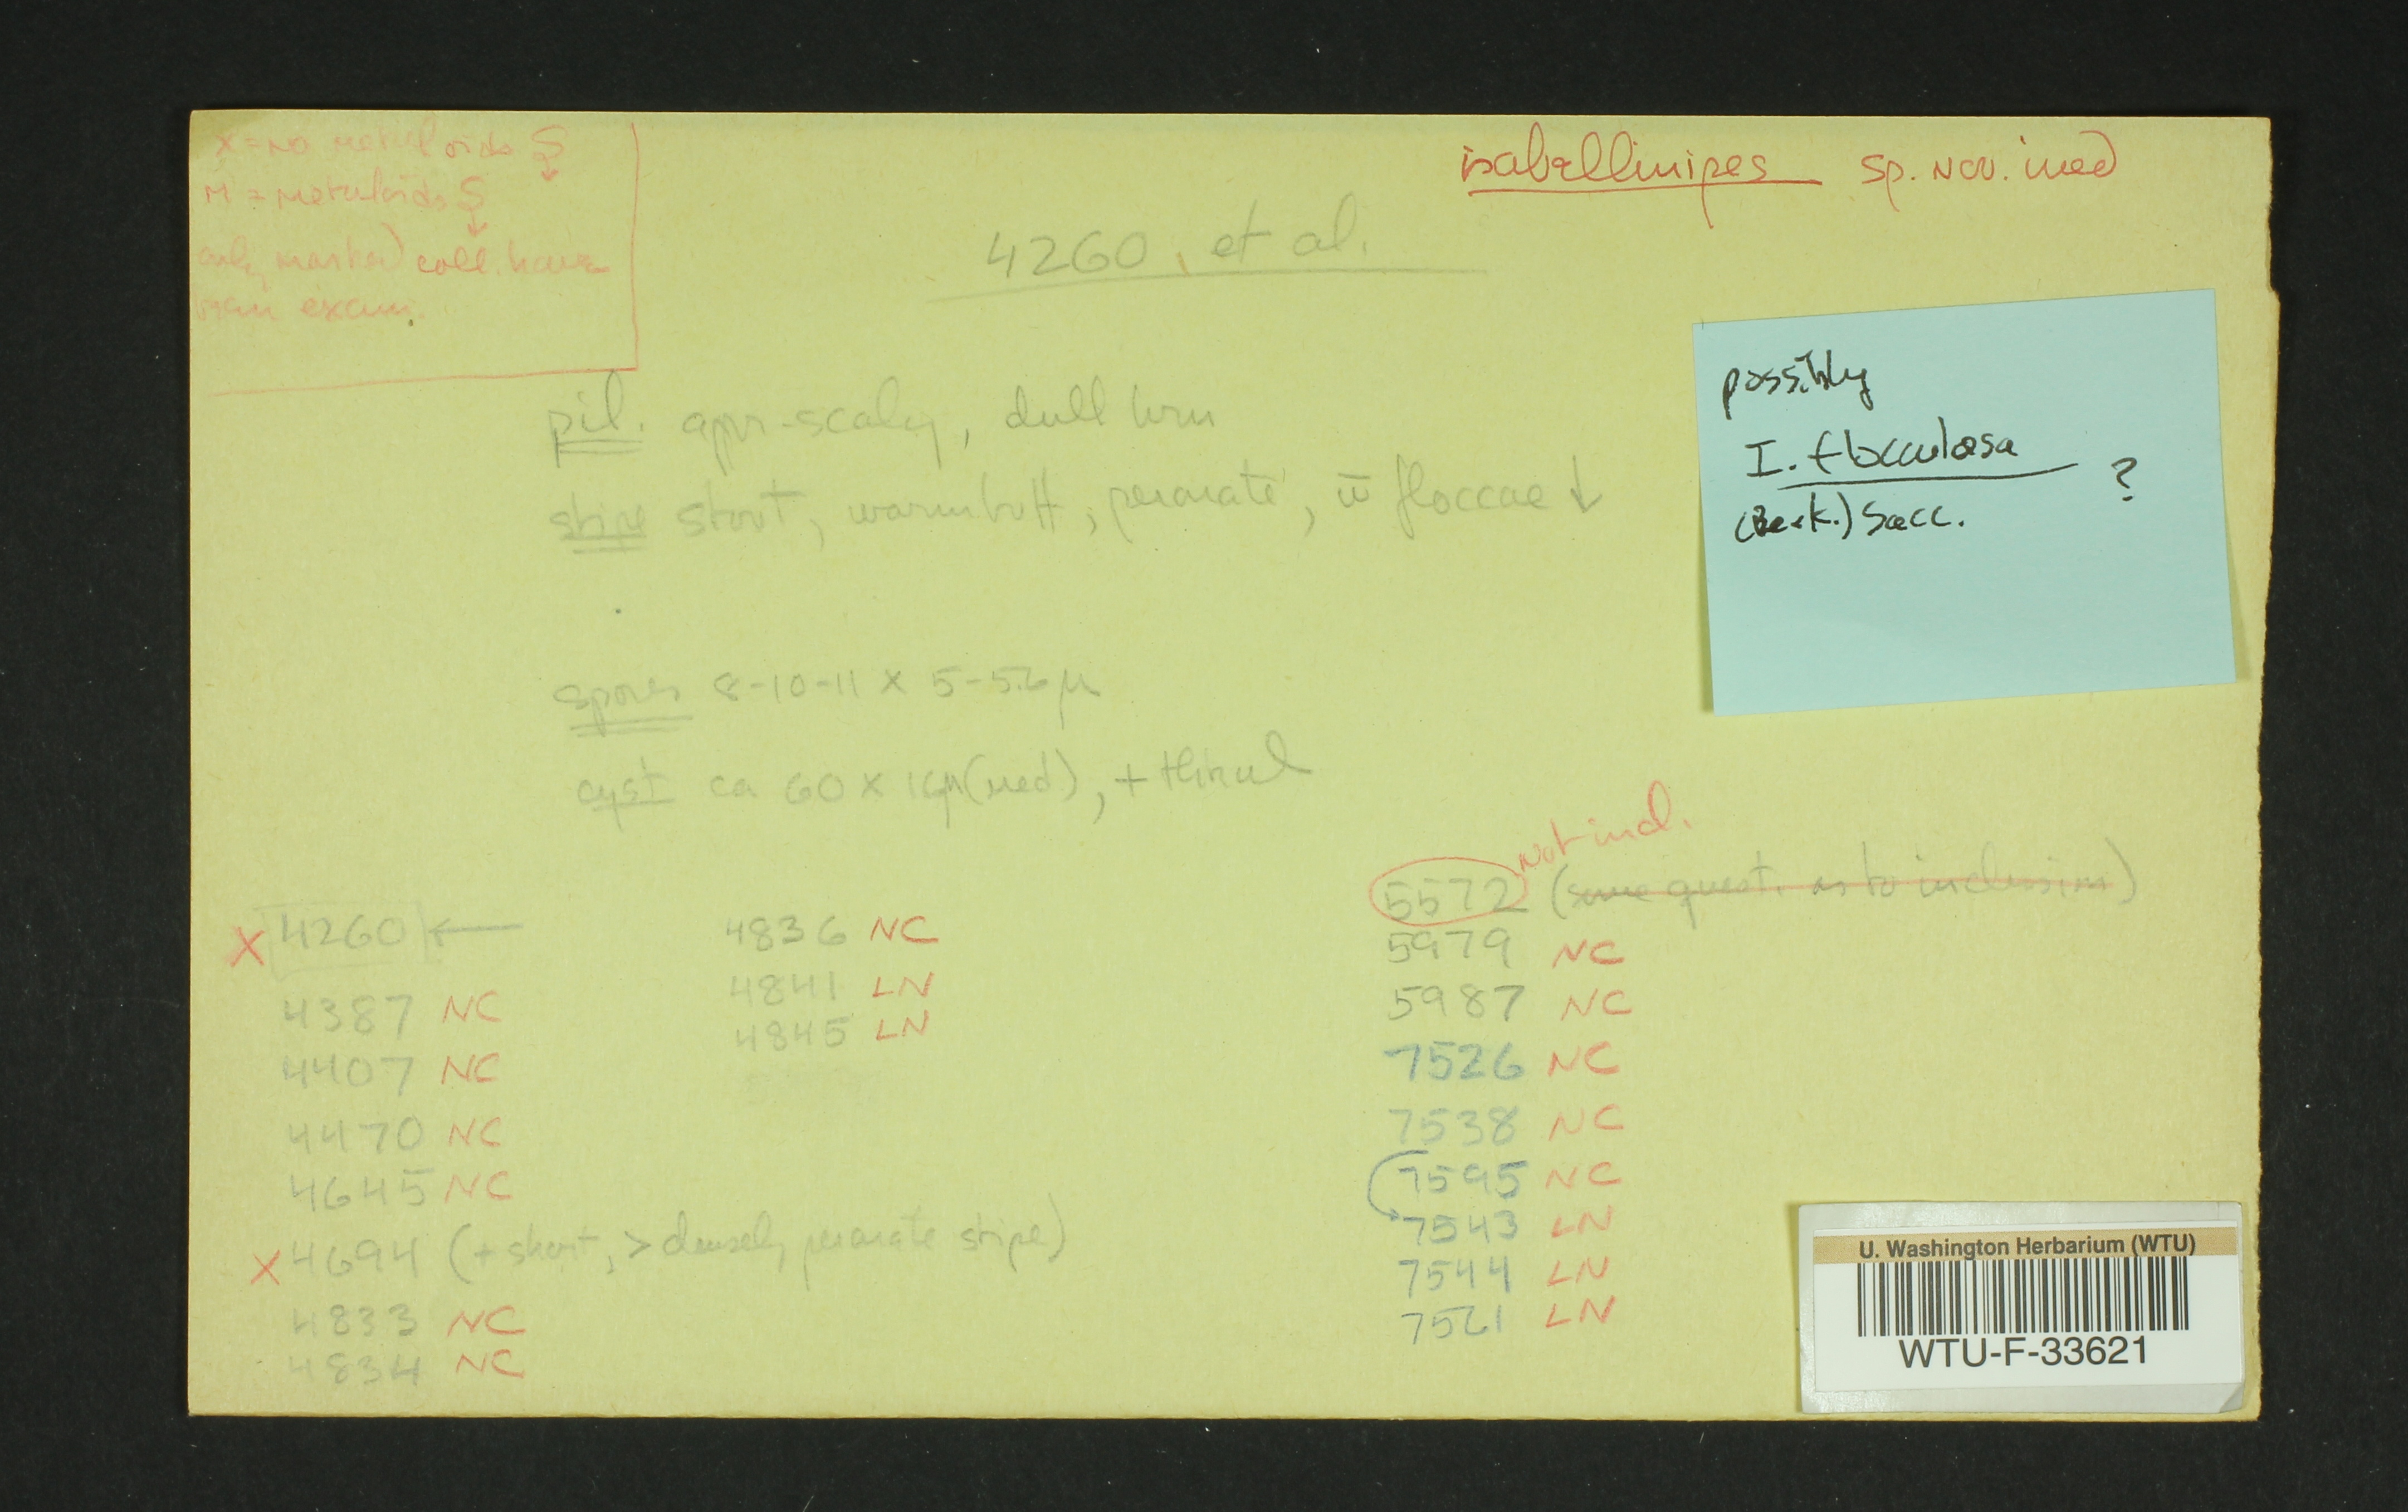 X = no metuloids S↓
M = metuloids S↓
only marked coll. have
been exam.
isabellinipes sp. nov. ined
4260, et al.
possibly
I. flocculosa ?
(Berk.) Sacc.
pil. appr-scaly, dull brn
stipe stout, warm buff, peronate, w̄ floccae ↓
spores 8-10-11 x 5-5.6 µ
cyst ca 60 x 16µ (med), +
X 4260 ←
4387 NC
4407 NC
4470 NC
4645 NC
X 4694 (+ short, > densely peronate stipe)
4833 NC
4834 NC
4836 NC
4841 LN
4845 LN
Not incl.
5572 (some quest. as to inclusion)
5979 NC
5987 NC
7526 NC
7538 NC
7595 NC
7543 LN
7544 LN
7521 LN
U. Washington Herbarium (WTU)
WTU-F-33621